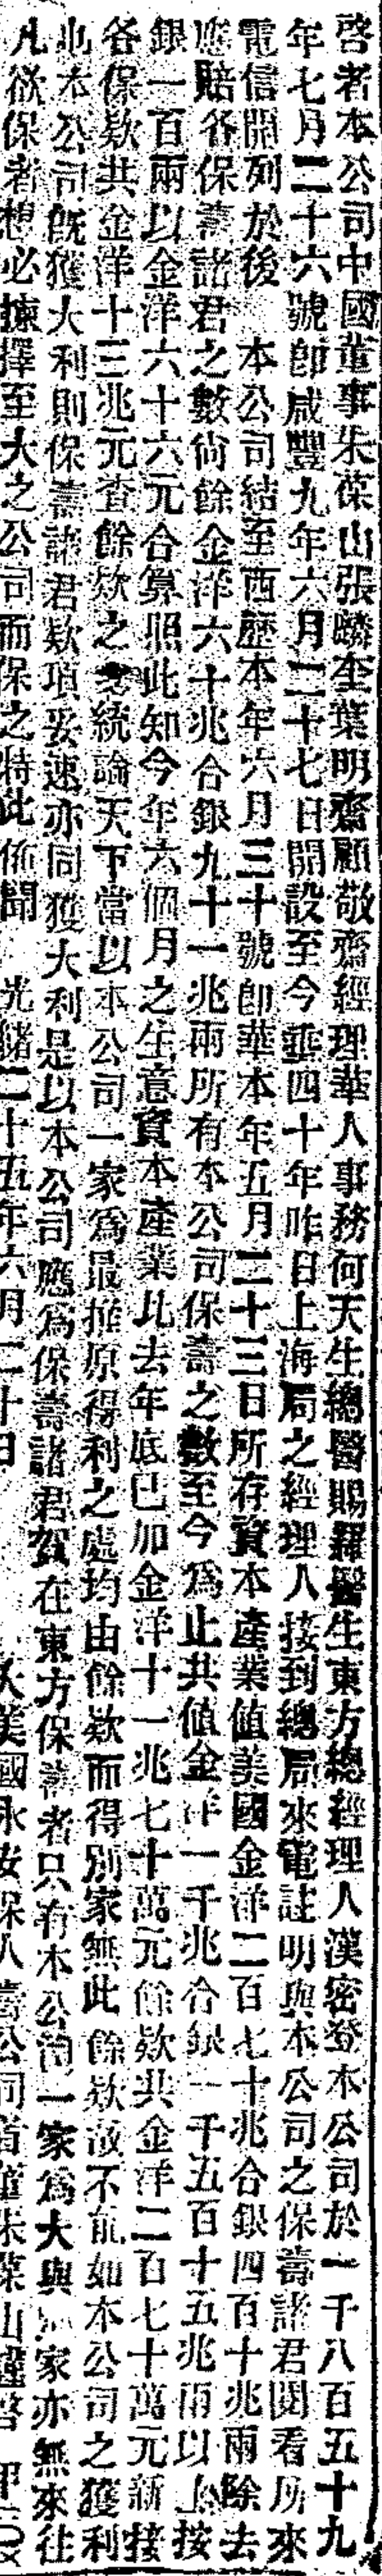 啓者本公司中國董事朱葆山張麟奎葉明齋顧敬齋經理華人事務何天生總醫賜羅醫生東方總經理人漢密登本公司於一千八百五十九
年七月二十六號卽咸豐九年六月二十七日開設至今垂四十年昨日上海局之經理人接到總局來電註明與本公司之保壽諸君閱看所來
電信開列於後 本公司結至西歷本年六月三十號卽華本年五月二十三日所存資本產業值美國金洋二百七十兆合銀四百十兆兩除去
應賠各保壽諸君之數尙餘金洋六十兆合銀九十一兆兩所有本公司保壽之數至今爲止共值金洋一千兆合銀一千五百十五兆兩以上按
銀一百兩以金洋六十六元合算照此知今年六個月之生意資本產業比去年底已加金洋十一兆七十萬元餘欵共金洋二百七十萬元新接
各保欵共金洋十三兆元查餘欵之統論天下當以本公司一家爲最推原得利之處均由餘欵而得別家無此餘欵故不能如本公司之獲利
也本公司旣獲大利則保壽諸君欵項妥速亦同獲大利是以本公司應爲保壽諸君賀在東方保壽者只有本公司一家爲大與家亦無來往
凡欲保者想必揀擇至大之公司而保之特此佈聞 光緒二十五年六月二十日 大美國永安保人壽公司首董朱葆山謹啓